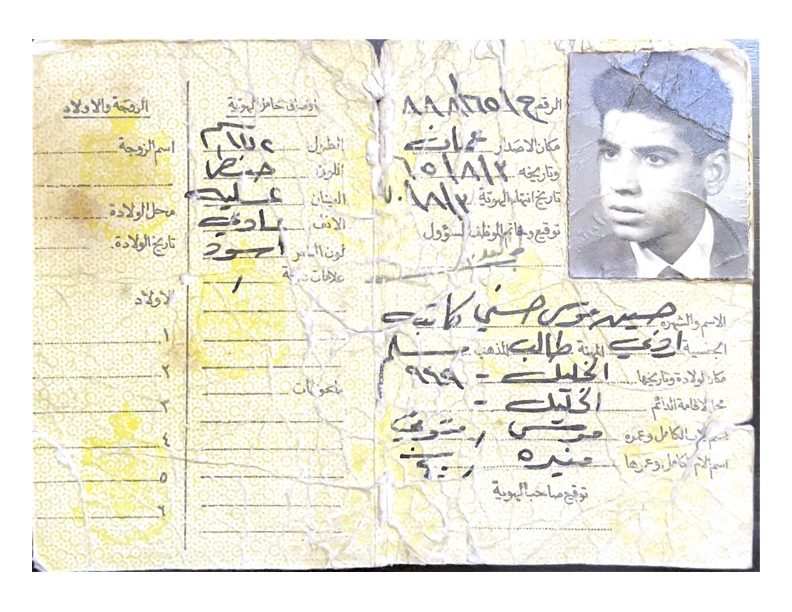 الرقم ٨٨٨/٦٥١/ج
مكان الاصدار عمان
وتاريخه ٣/٨/٦٥
تاريخ انتهاء الهوية ٣/٨/٧٠
توقيع وخاتم الموظف المسؤول
الاسم والشهرة حسين موسى حسني كاتبه
الجنسية اردني المهنة طالب المذهب مسلم
مكان الولادة وتاريخها الخليل -
محل الاقامة الدائم الخليل -
اسم الاب الكامل وعمره موسى / متوفي
اسم الام الكامل وعمرها منيره
توقيع صاحب الهوية
اوصاف حامل الهوية
الطول
اللون حنطي
العينان عسلية
الانف عادي
لون الشعر اسود
علامات فارقة /
ملحوظات
الزوجة والاولاد
اسم الزوجة
محل الولادة
تاريخ الولادة
الاولاد
١
٢
٣
٤
٥
٦